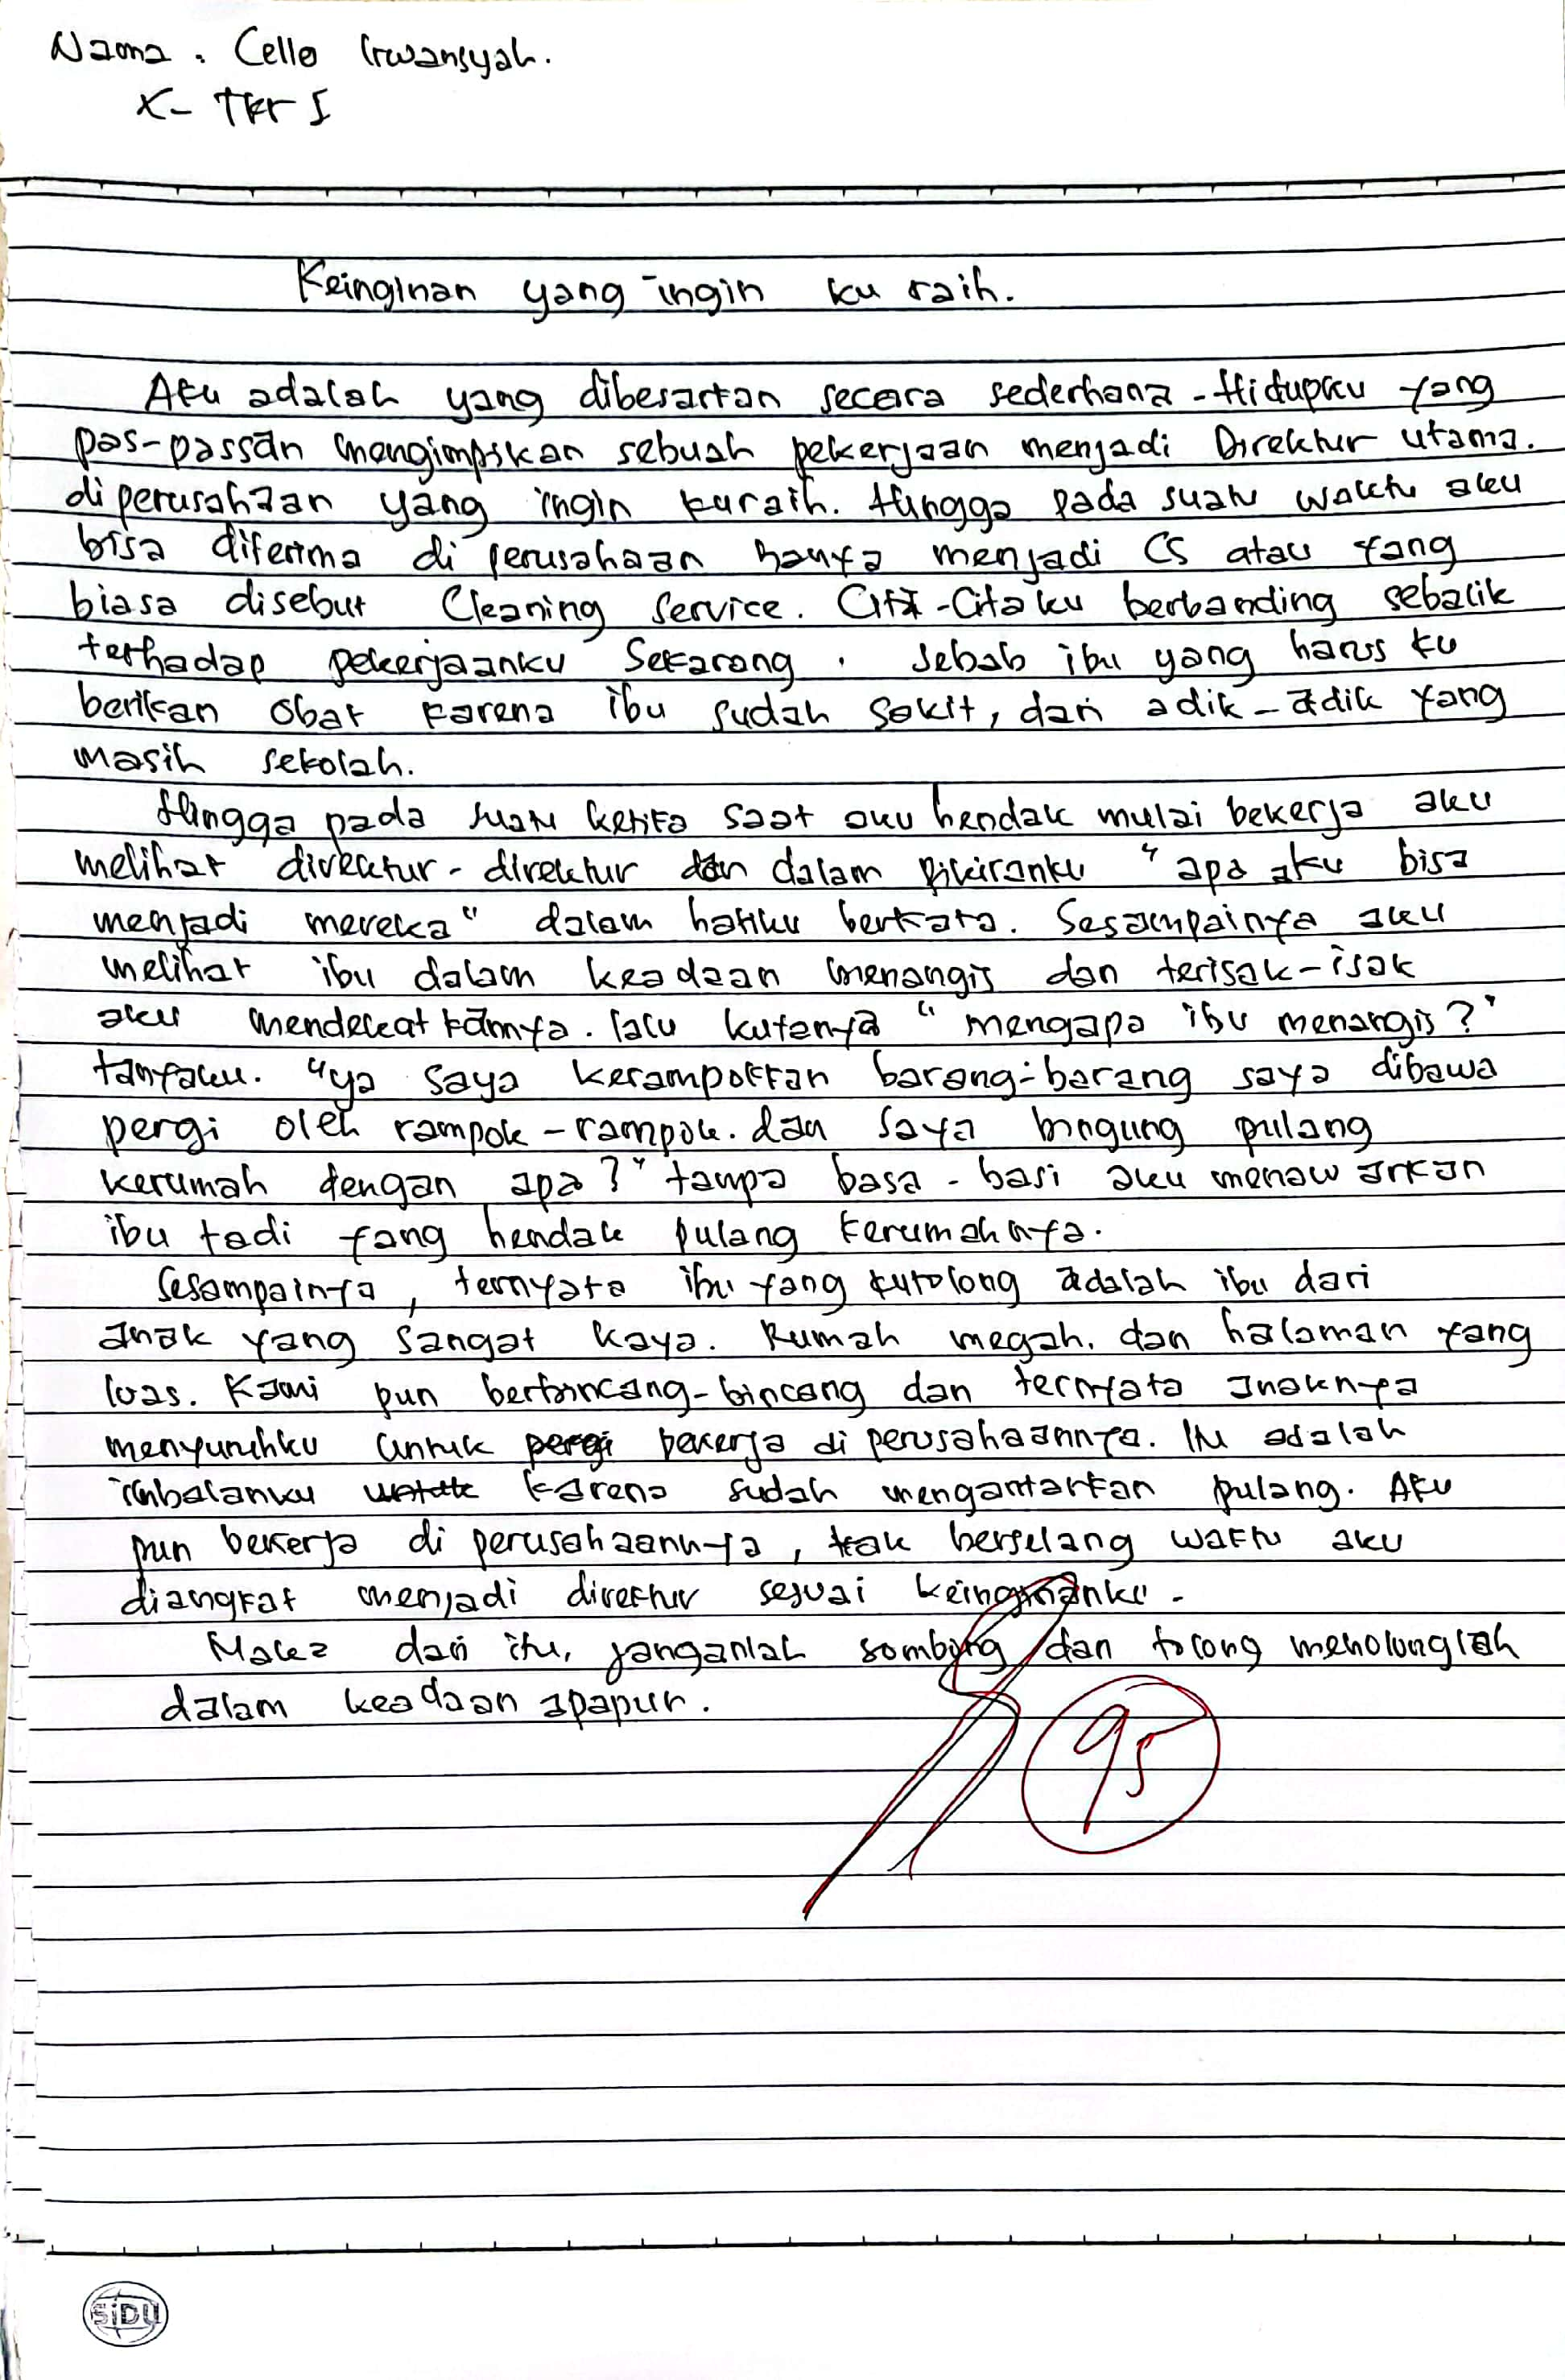 Nama : Cello Irwansyah.
X - TKr I
Keinginan yang ingin ku raih.
Aku adalah yang dibesarkan secara sederhana - Hidupku yang
pas-passan mengimpikan sebuah pekerjaan menjadi Direktur utama.
di perusahaan yang ingin kuraih. Hingga pada suatu waktu aku
bisa diterima di perusahaan hanya menjadi CS atau yang
biasa disebut Cleaning Service. Cita-Citaku berbanding sebalik
terhadap pekerjaanku sekarang. Sebab ibu yang harus ku
berikan obat karena ibu sudah sakit, dan adik-adik yang
masih sekolah.
Hingga pada suatu ketika saat aku hendak mulai bekerja aku
melihat direktur-direktur dan dalam pikiranku "apa aku bisa
menjadi mereka" dalam hatiku berkata. Sesampainya aku
melihat ibu dalam keadaan menangis dan terisak-isak
aku mendekatkannya. lalu kutanya "mengapa ibu menangis?"
tanyaku. "ya saya kerampokkan barang-barang saya dibawa
pergi oleh rampok-rampok. dan saya bingung pulang
kerumah dengan apa?" tanpa basa-basi aku menawarkan
ibu tadi yang hendak pulang kerumahnya.
Sesampainya, ternyata ibu yang kutolong adalah ibu dari
anak yang sangat kaya. Rumah megah. dan halaman yang
luas. Kami pun berbincang-bincang dan ternyata anaknya
menyuruhku untuk pergi bekerja di perusahaannya. Itu adalah
imbalanku untuk karena sudah mengantarkan pulang. Aku
pun bekerja di perusahaannya, tak berselang waktu aku
diangkat menjadi direktur sesuai keinginanku.
Maka dari itu, janganlah sombong dan tolong menolonglah
dalam keadaan apapun.
95
SiDU